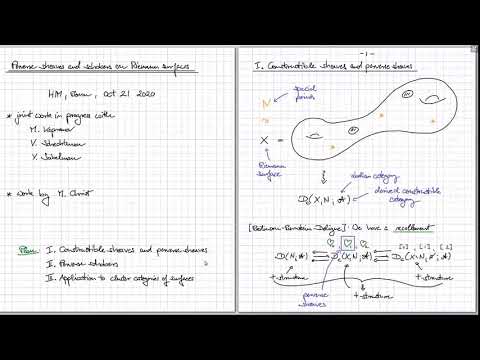 Perverse sheaves and schobers on Riemann surfaces
HIM, Bonn, Oct 21 2020
* joint work in progress with
M. Kapranov
V. Schechtman
Y. Soibelman
* work by M. Christ
Plan: I. Constructible sheaves and perverse sheaves
II. Perverse schobers
III. Application to cluster categories of surfaces
- 1 -
I. Constructible sheaves and perverse sheaves
N
special points
X =
Riemann surface
abelian category
D_c(X, N; A)
derived constructible category
[Beilinson-Bernstein-Deligne]: We have a recollement
♡ ♡ ♡
[0] , [1] , [2]
D(N; A) ⇄ D_c(X, N; A) ⇄ D_c(X \ N, ∅; A)
t-structure
t-structure
perverse sheaves
t-structure